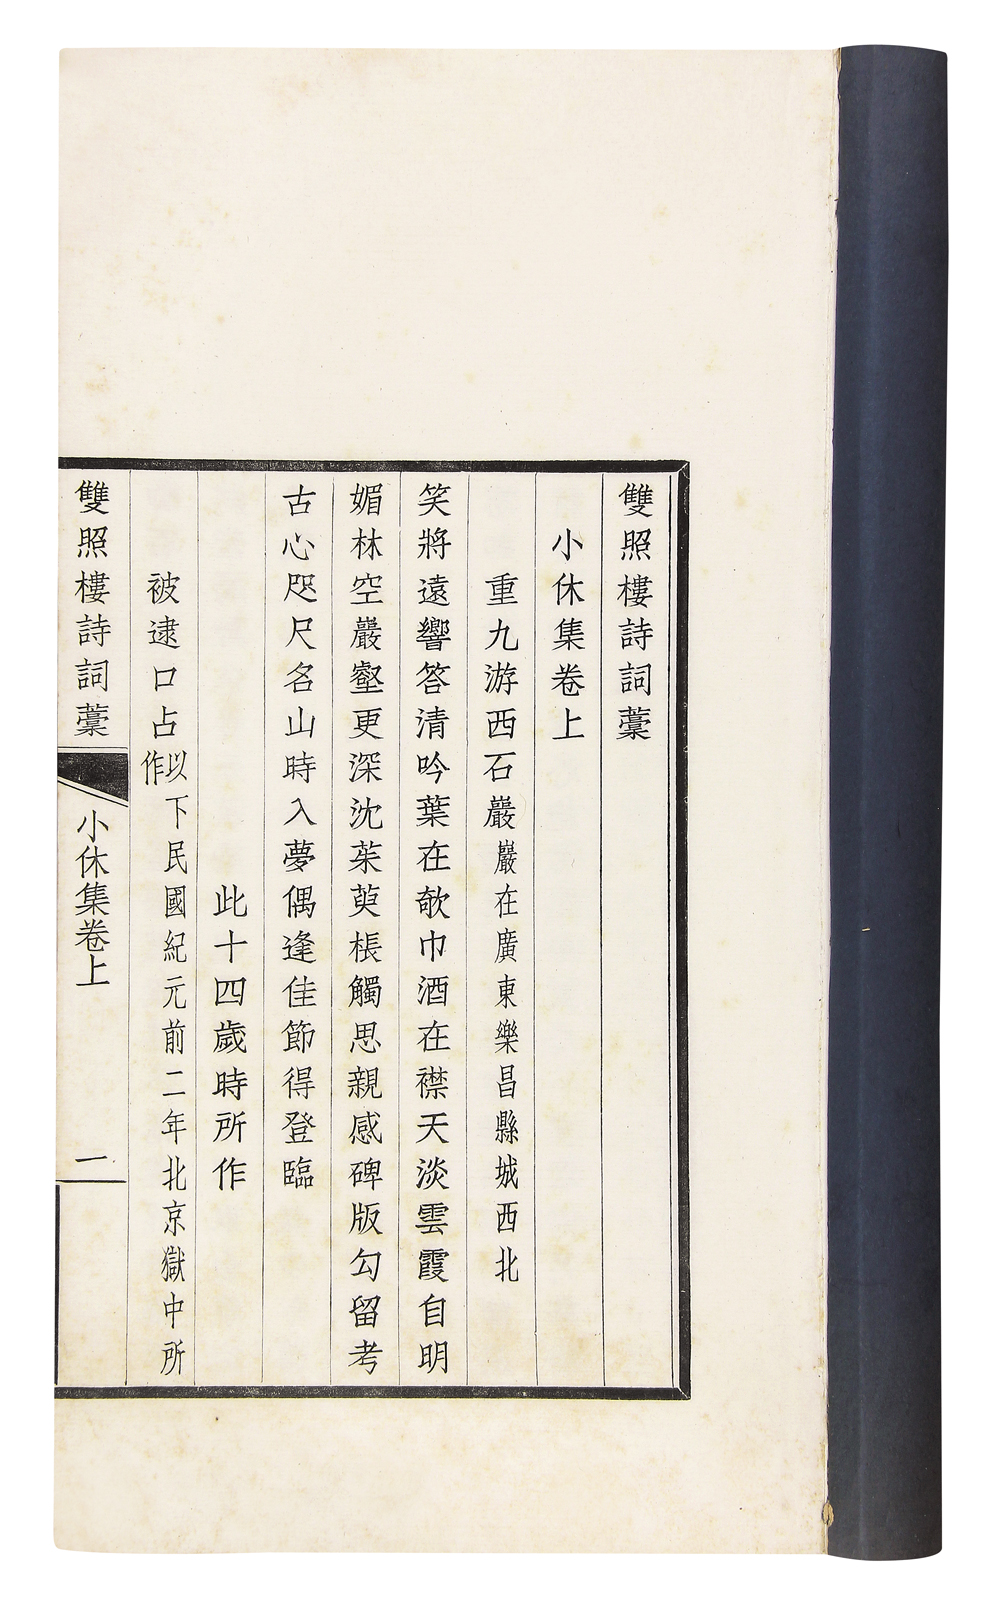 雙照樓詩詞藁
小休集卷上
重九游西石巖巖在廣東樂昌縣城西北
笑將遠響答清吟葉在欹巾酒在襟天淡雲霞自明
媚林空巖壑更深沈茱萸棖觸思親感碑版勾留考
古心咫尺名山時入夢偶逢佳節得登臨
此十四歲時所作
被逮口占以下民國紀元前二年北京獄中所作
雙照樓詩詞藁 小休集卷上 一